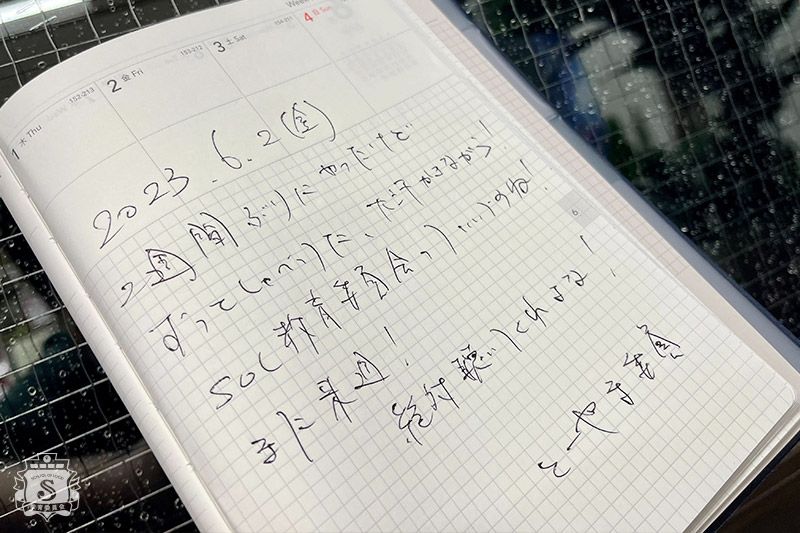 1 木 Thu 152-213
2 金 Fri 153-212
3 土 Sat 154-211
4 日 Sun
Week
2023.6.2(金)
2週間ぶりにやったけど
ずっとしゃべってた、汗かきながら!
SOL教育委員会っていいのね!
また来週!
絶対聴いてくれよな!
とーやま委員
6
SCHOOL OF LOCK!
S
教育委員会